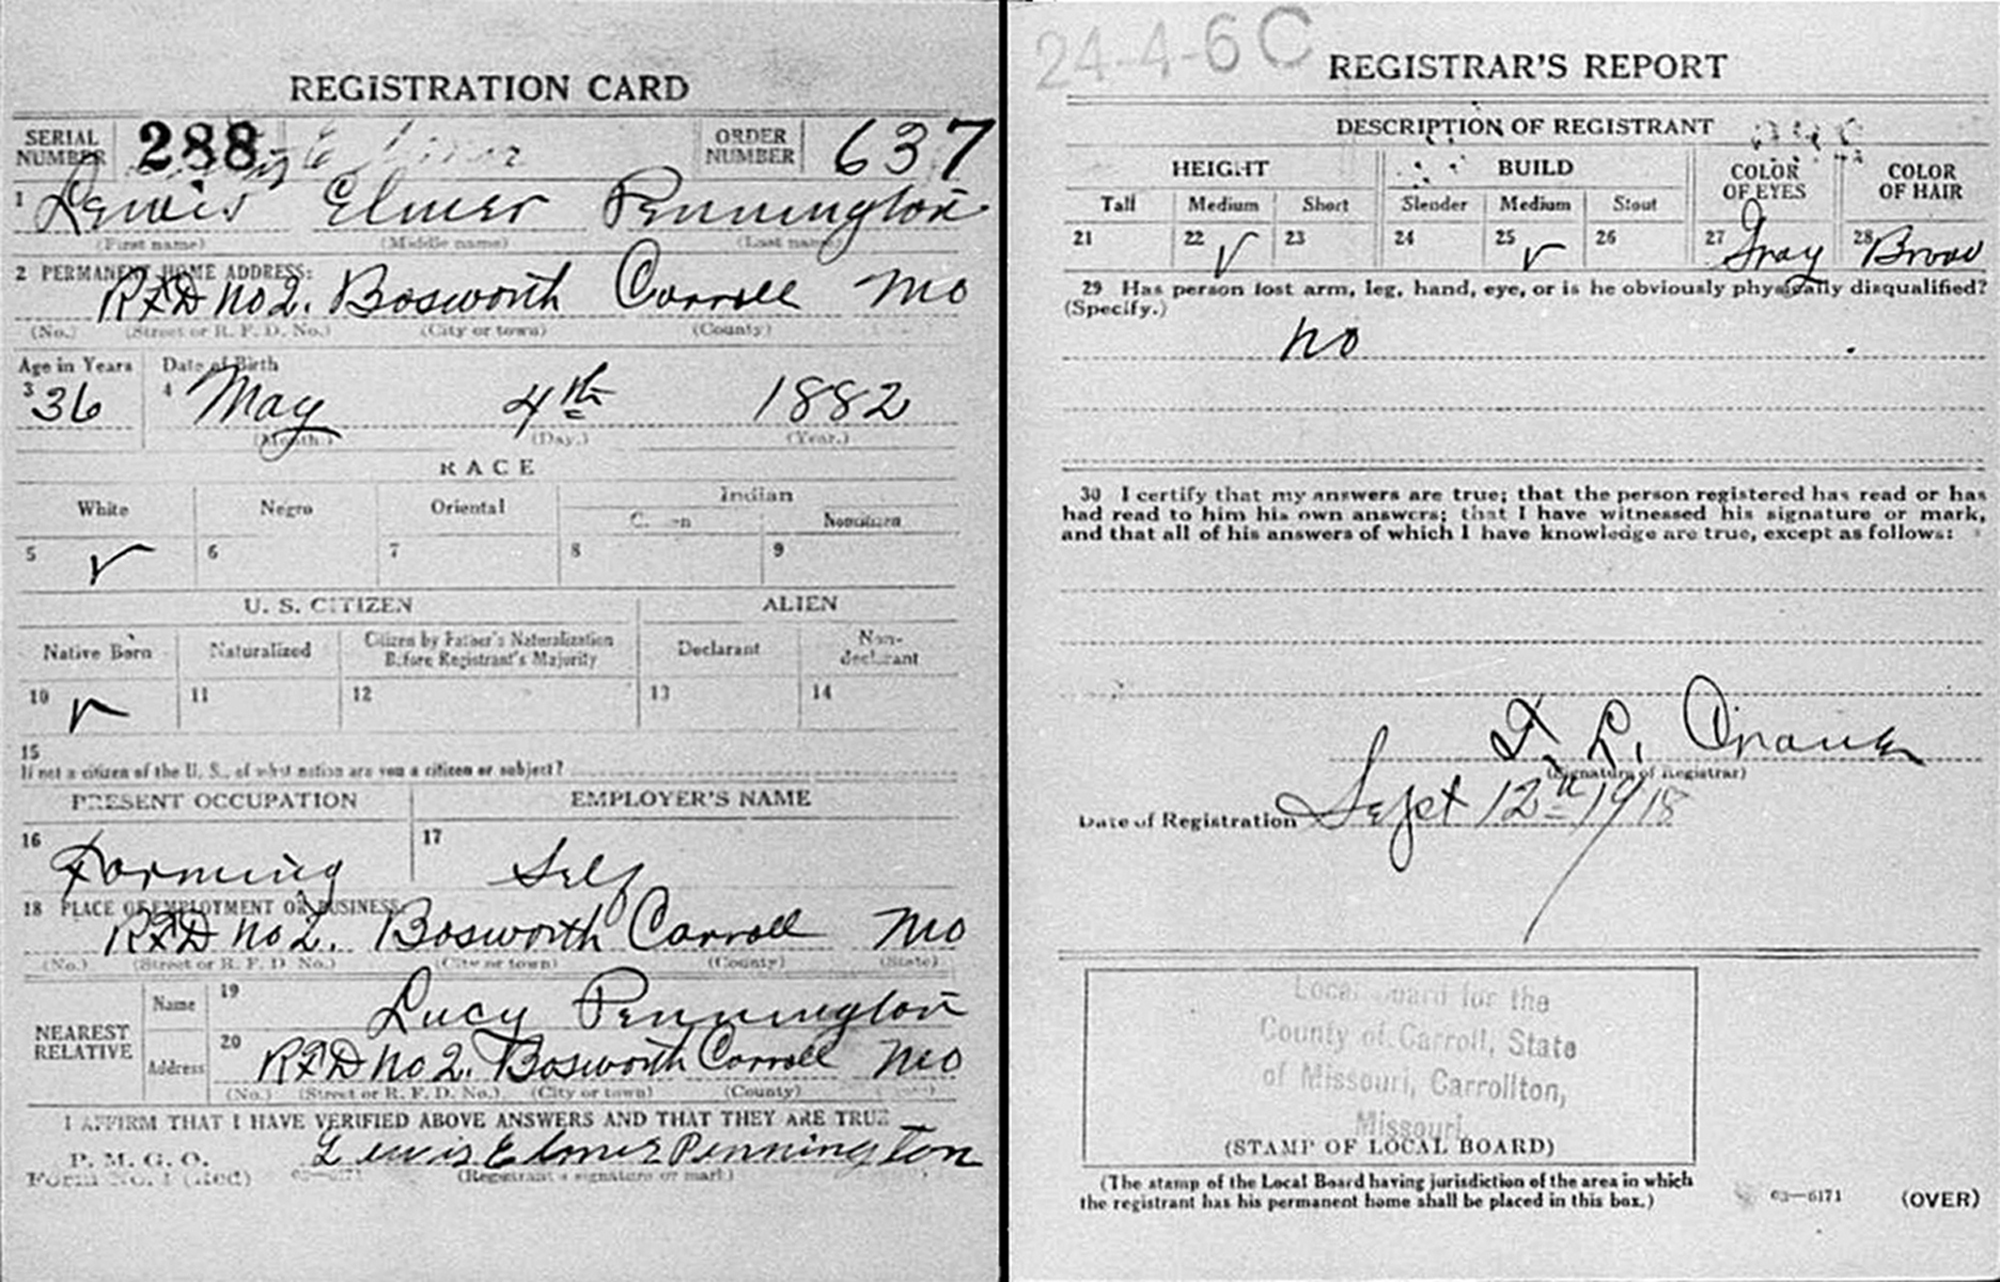 REGISTRATION CARD
SERIAL NUMBER 288 ORDER NUMBER 637
1 Lewis Elmer Pennington
(First name) (Middle name) (Last name)
2 PERMANENT HOME ADDRESS:
RFD No 2. Bosworth Carroll Mo
(No.) (Street or R. F. D. No.) (City or town) (County)
Age in Years Date of Birth
3 36 4 May 4th 1882
(Month.) (Day.) (Year.)
RACE
White Negro Oriental Indian
Citizen Noncitizen
5 √ 6 7 8 9
U. S. CITIZEN ALIEN
Native Born Naturalized Citizen by Father's Naturalization Before Registrant's Majority Declarant Non-declarant
10 √ 11 12 13 14
15
If not a citizen of the U. S., of what nation are you a citizen or subject?
PRESENT OCCUPATION EMPLOYER'S NAME
16 Farming 17 Self
18 PLACE OF EMPLOYMENT OR BUSINESS:
RFD No 2. Bosworth Carroll Mo
(No.) (Street or R. F. D. No.) (City or town) (County) (State)
NEAREST RELATIVE Name 19 Lucy Pennington
Address 20 RFD No 2. Bosworth Carroll Mo
(No.) (Street or R. F. D. No.) (City or town) (County)
I AFFIRM THAT I HAVE VERIFIED ABOVE ANSWERS AND THAT THEY ARE TRUE
P. M. G. O.
Form No. 1 (Red) Lewis Elmer Pennington
(Registrant's signature or mark)
24-4-6 C
REGISTRAR'S REPORT
DESCRIPTION OF REGISTRANT
HEIGHT BUILD COLOR OF EYES COLOR OF HAIR
Tall Medium Short Slender Medium Stout
21 22 √ 23 24 25 √ 26 27 Gray 28
29 Has person lost arm, leg, hand, eye, or is he obviously physically disqualified?
(Specify.)
no
30 I certify that my answers are true; that the person registered has read or has
had read to him his own answers; that I have witnessed his signature or mark,
and that all of his answers of which I have knowledge are true, except as follows:
(Signature of Registrar)
Date of Registration Sept 12th 1918
Local Board for the
County of Carroll, State
of Missouri, Carrollton,
Missouri.
(STAMP OF LOCAL BOARD)
(The stamp of the Local Board having jurisdiction of the area in which
the registrant has his permanent home shall be placed in this box.)
03—6171 (OVER)